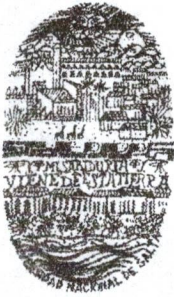 MI SABIDURIA
VIENE DE ESTA TIERRA
NACIONAL DE SALTA